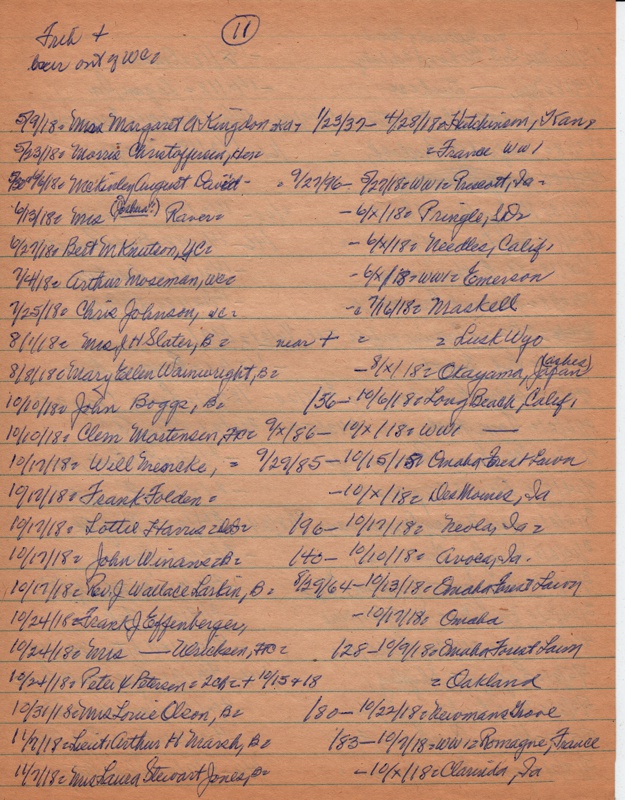 11
+
out of WC=
5/9/18= Mrs Margaret A Kingdon 1/23/37- 4/28/18= Hutchinson, Kan,
5/23/18= Morris Christoffersen, = France WW1
McKinley August David- = 9/27/96- 5/27/18=WW1= Prescott, Ia=
6/13/18= Mrs (Joshua?) Raver= -6/x/18= Pringle, SD=
6/27/18= Bert M Knutson, WC= -6/x/18= Needles, Calif,
7/4/18= Arthur Moseman, WC= -6/x/18=WW1= Emerson
7/25/18= Chris Johnson, WC= -=7/16/18= Maskell
8/1/18= Mrs J H Slater, B= near + = = Lusk Wyo
8/8/18= Mary Ellen Wainwright, B= -8/x/18= Okayama, Japan (ashes)
10/10/18= John Boggs, B= /36-10/6/18= Long Beach, Calif,
10/10/18= Clem Mortensen, 9/x/86- 10/x/18= WW1 —
10/17/18= Will = 9/29/85-10/15/18= Omaha Forest Lawn
10/17/18= Frank Folden= -10/x/18= Des Moines, Ia
10/17/18= Lottie Harris= /96- 10/17/18= Neola, Ia=
10/17/18= John B= /40- 10/10/18= Avoca, Ia.
10/17/18= Rev. J Wallace Larkin, B= 8/29/64-10/13/18= Omaha Forest Lawn
10/24/18= Frank J Effenberger, -10/17/18= Omaha
10/24/18= Mrs — Ulricksen, /28-10/9/18= Omaha Forest Lawn
10/24/18= Peter K Peterson= + 10/15 + 18 = Oakland
10/31/18= Mrs Louie Olson, B= /80- 10/22/18= Newmans Grove
11/7/18= Lieut Arthur H Marsh, B= /83-10/7/18=WW1= Romagne, France
11/7/18= Mrs Laura Stewart Jones, B= -10/x/18= Clarinda, Ia